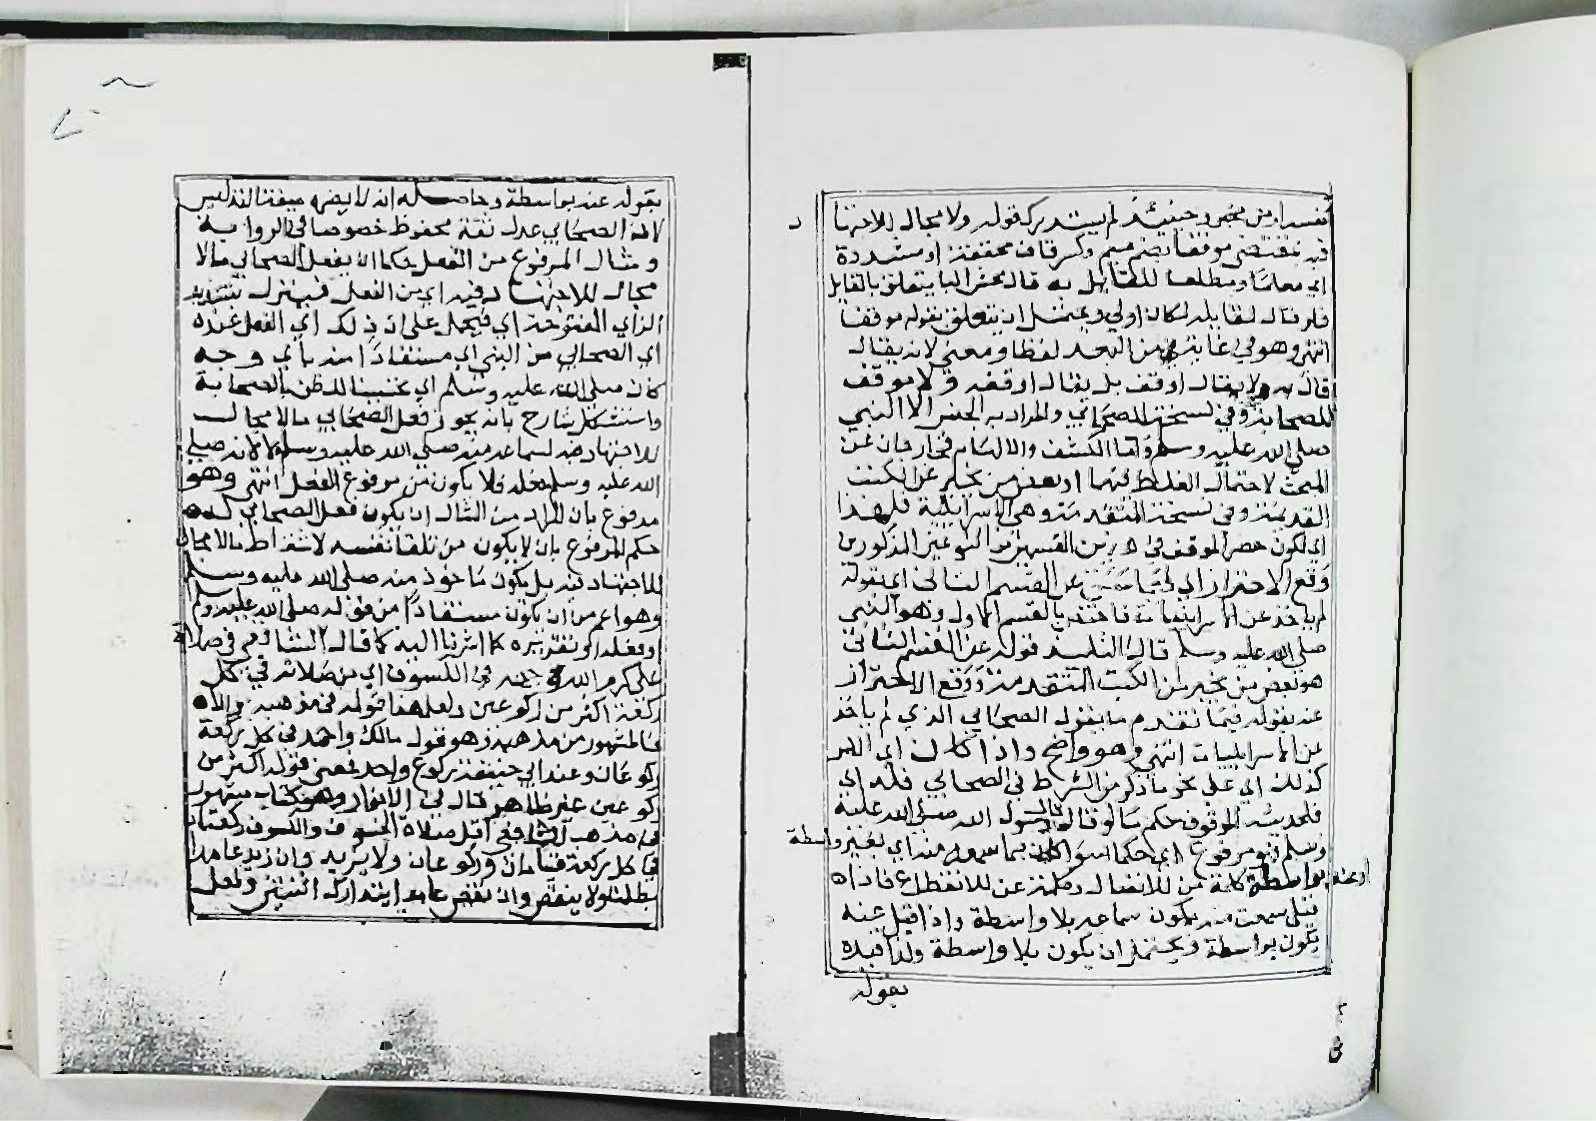 نفسه او من محض وحينئذ لم يستدرك قوله ولا مجال للاجتهاد
فيه يقتضي موقفا بضم ميم وكسر قاف مخففة او مشددة
اي معلما ومطلعا للقايل به قال محش البا يتعلق بالقايل
فلو قال لقايله لكان اولى ويحتمل ان يتعلق بقوله موقفا
انتهى وهو في غاية من البعد لفظا ومعنى لانه يقال
قال به ولا يقال اوقف به بل يقال اوقفه ولا موقف
للصحابة وفي نسخة للصحابي والمراد به الجنس الا النبي
صلى الله عليه وسلم واما الكشف والالهام فخارجان عن
المبحث لاحتمال الغلط فيهما او بعض من يخبر عن الكتب
القديمة وفي نسخة المتقدمة وهي الاسرائيلية فلهذا
اي لكون حصر الموقف في هذين القسمين
وقع الاحتراز اي فيما عن القسم الثاني اي بقوله
لم ياخذ عن الاسرائيليات فاختص بالقسم الاول وهو النبي
صلى الله عليه وسلم قال التلميذ قوله عن القسم الثاني
هو بعض من يخبر عن الكتب المتقدمة ووقع الاحتراز
عنه بقوله فيما تقدم ما يقول الصحابي الذي لم ياخذ
عن الاسرائيليات انتهى وهو واضح واذا كان اي الامر
كذلك اي على نحو ما ذكر من الشرط في الصحابي فله اي
فلحديثه الموقوف حكم ما لو قال قال رسول الله صلى الله عليه
وسلم فهو مرفوع اي حكما سواء كان مما سمعه منه اي بغير واسطة
او عنه بواسطة كلمة من للاتصال وكلمة عن للانقطاع فاذا
قيل سمعت منه يكون سماعه بلا واسطة واذا قيل عنه
يكون بواسطة ويحتمل ان يكون بلا واسطة ولذا قيده
بقوله
بقوله عنه بواسطة وحاصله انه لا يضره صيغة التدليس
لان الصحابي عدل ثقة محفوظ خصوصا في الرواية
ومثال المرفوع من الفعل حكما ان يفعل الصحابي ما لا
مجال للاجتهاد فيه اي من الفعل فينزل بتشديد
الزاي المفتوحة اي فيحمل على ان ذلك اي الفعل عنده
اي الصحابي من النبي اي مستفادا منه باي وجه
كان صلى الله عليه وسلم اي تحسينا للظن بالصحابة
واستشكل شارح بانه يجوز فعل الصحابي ما لا مجال
للاجتهاد فيه لسماعه منه صلى الله عليه وسلم لا لانه صلى
الله عليه وسلم فعله فلا يكون من مرفوع الفعل انتهى وهو
مدفوع بان المراد من المثال ان يكون فعل الصحابي له
حكم المرفوع بان لا يكون من تلقاء نفسه لاشتراط ما لا مجال
للاجتهاد فيه بل يكون ماخوذ منه صلى الله عليه وسلم
وهو اعم من ان يكون مستفادا من قوله صلى الله عليه وسلم
او فعله او تقريره كما اشرنا اليه كما قال الشافعي في صلاة
علي كرم الله وجهه في الكسوف اي من صلاته في كل
ركعة اكثر من ركوعين ولعل هذا قوله في مذهبه والا
فالمشهور من مذهبه وهو قول مالك واحمد في كل ركعة
ركوعان وعند ابي حنيفة ركوع واحد فمعنى قوله اكثر من
ركوعين غير ظاهر قال في الانوار وهو كتاب مشهور
في مذهب الشافعي اقل صلاة الخسوف والكسوف ركعتان
في كل ركعة قيامان وركوعان ولا يزيد وان زيد عامدا
بطلت ولا ينقص وان نقص عامدا يتداركه انتهى ولعل